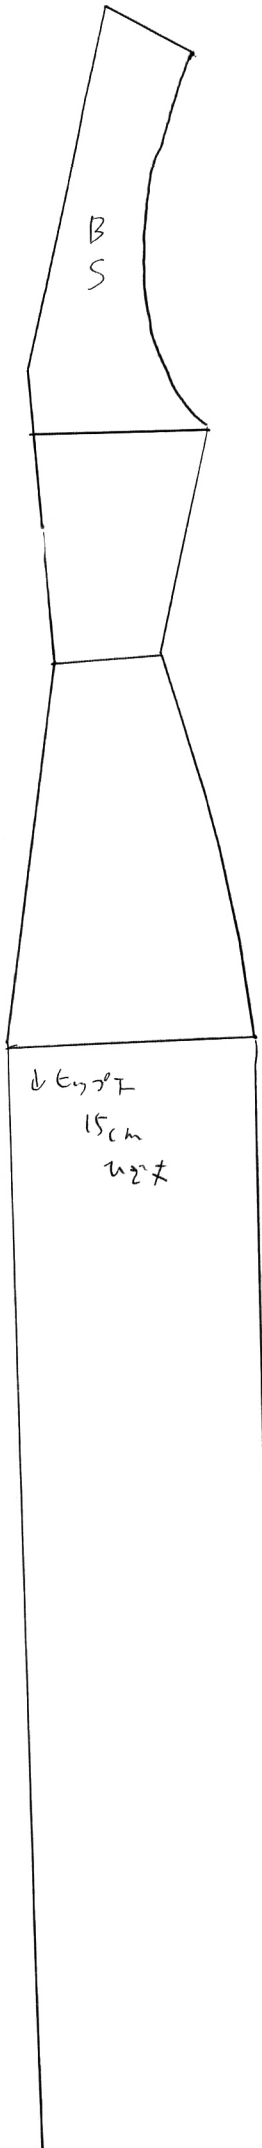 B
S
↓ヒップ下
15cm
ひざ丈